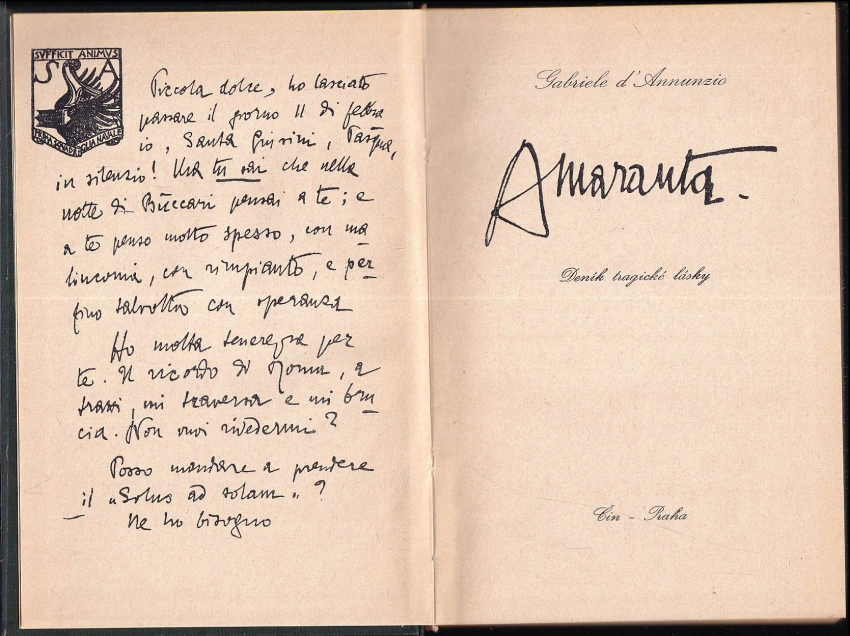 SVFFICIT ANIMVS
S A
Piccola dolce, ho lasciato
passare il giorno 11 di febbra
io, Santa Giusini, Pasqua,
in silenzio! Ma tu sai che nella
notte di Buccari pensai a te; e
a te penso molto spesso, con ma
linconia, con rimpianto, e per
fino talvolta con speranza
Ho molta tenerezza per
te. Il ricordo di Roma, a
tratti, mi traversa e mi bru
cia. Non vuoi rivedermi?
Posso mandare a prendere
il "Solus ad solam"?
Ne ho bisogno
Gabriele d'Annunzio
Amaranta.
Deník tragické lásky
Čin - Praha